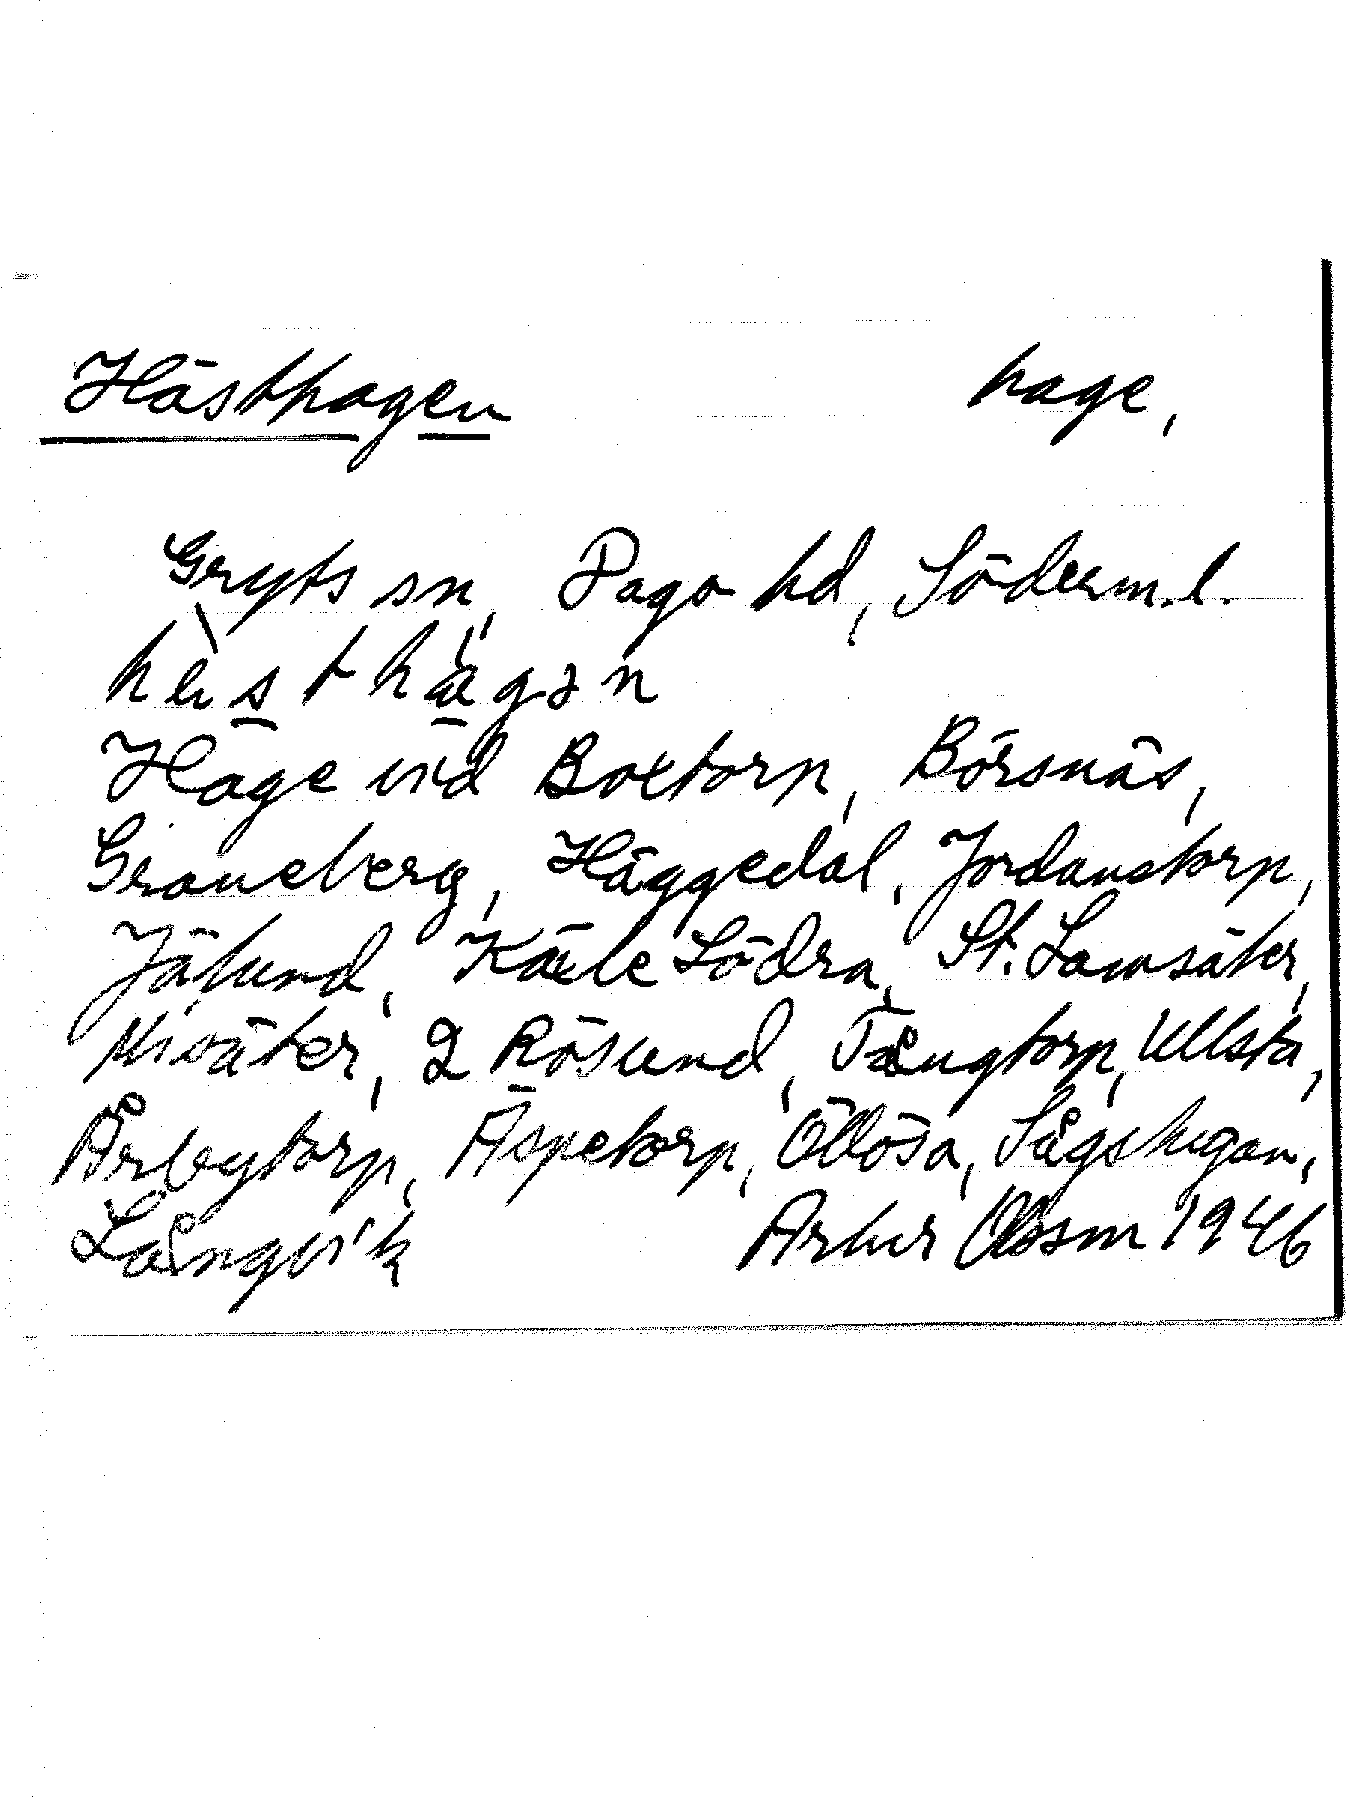 Hästhagen hage,
Gryts sn, Daga hd, Söderm.l.
hæsthagən
Hage vid Boxtorp, Börsnäs,
Graneberg, Häggedal, Jordanstorp,
Jälund, Södra, St. Lamsäter,
2 Rösund, Tångtorp, Ullsta,
Årbytorp, Äspetorp, Öllösa, Sågstugan,
Långvik Artur Olsson 1946